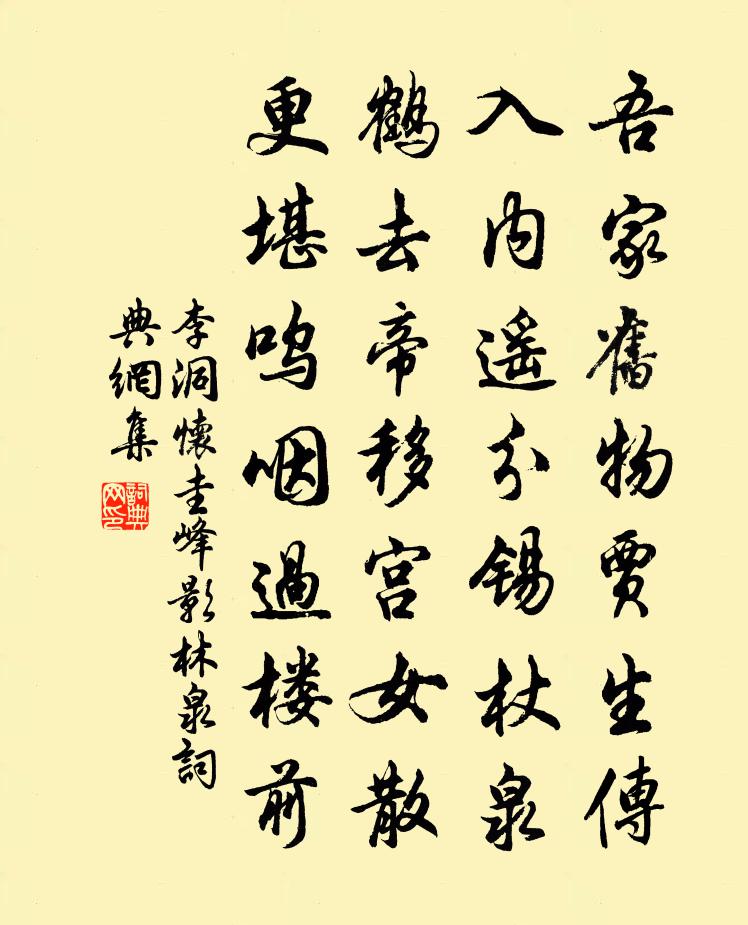 吾家舊物賈生傳
入内遥分锡杖泉
鶴去帝移宫女散
更堪鸣咽過楼前
李洞懷圭峰影林泉詞
典網集
詞典网印